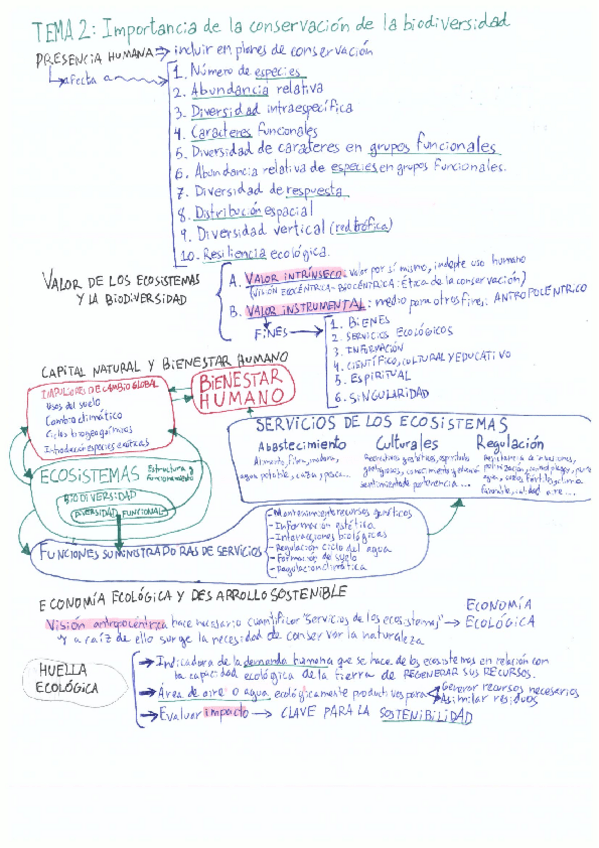 TEMA 2: Importancia de la conservación de la biodiversidad
PRESENCIA HUMANA → incluir en planes de conservación
afecta a
1. Número de especies
2. Abundancia relativa
3. Diversidad intraespecífica
4. Caracteres funcionales
5. Diversidad de caracteres en grupos funcionales
6. Abundancia relativa de especies en grupos funcionales.
7. Diversidad de respuesta
8. Distribución espacial
9. Diversidad vertical (red trófica)
10. Resiliencia ecológica.
VALOR DE LOS ECOSISTEMAS
Y LA BIODIVERSIDAD
A. VALOR INTRÍNSECO: valor por sí mismo, indepte uso humano
(VISIÓN ECOCÉNTRICA-BIOCÉNTRICA: Ética de la conservación)
B. VALOR INSTRUMENTAL: medio para otros fines: ANTROPOCÉNTRICO
FINES
1. BIENES
2. SERVICIOS ECOLÓGICOS
3. INFORMACIÓN
4. CIENTÍFICO, CULTURAL Y EDUCATIVO
5. ESPIRITUAL
6. SINGULARIDAD
CAPITAL NATURAL Y BIENESTAR HUMANO
IMPULSORES DE CAMBIO GLOBAL
Usos del suelo
Cambio climático
Ciclos biogeoquímicos
Introducción especies exóticas
BIENESTAR
HUMANO
SERVICIOS DE LOS ECOSISTEMAS
Abastecimiento Culturales Regulación
Alimento, fibra, maderas,
agua potable, caza y pesca...
Recreativos, estéticos, espirituales
conocimiento
sentimiento de pertenencia...
polinización, control plagas,
clima
calidad aire...
ECOSISTEMAS Estructura y
funcionamiento
BIODIVERSIDAD
DIVERSIDAD FUNCIONAL
FUNCIONES SUMINISTRADORAS DE SERVICIOS
- Mantenimiento recursos genéticos
- Información estética
- Interacciones biológicas
- Regulación ciclo del agua
- Formación de suelo
- Regulación climática
ECONOMÍA ECOLÓGICA Y DESARROLLO SOSTENIBLE
Visión antropocéntrica hace necesario cuantificar "servicios de los ecosistemas" → ECONOMÍA
ECOLÓGICA
y a raíz de ello surge la necesidad de conservar la naturaleza
HUELLA
ECOLÓGICA
→ Indicadora de la demanda humana que se hace de los ecosistemas en relación con
la capacidad ecológica de la tierra de REGENERAR SUS RECURSOS.
→ Área de aire o agua ecológicamente productivos para Generar recursos necesarios
Asimilar residuos
→ Evaluar impacto → CLAVE PARA LA SOSTENIBILIDAD